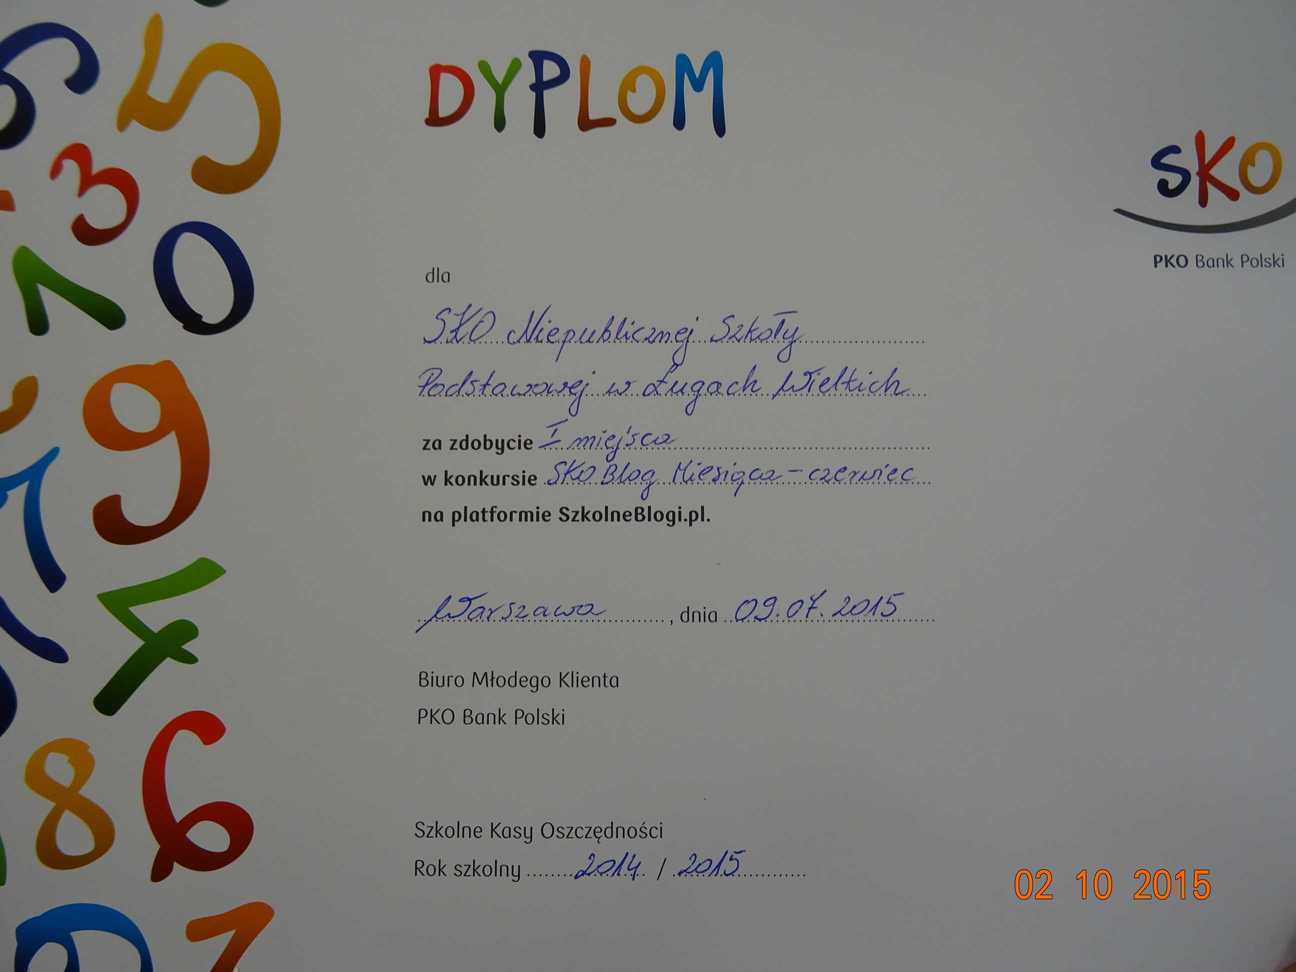 DYPLOM
SKO
PKO Bank Polski
dla
SKO Niepublicznej Szkoły
Podstawowej w Ługach Wielkich
za zdobycie I miejsca
w konkursie SKO Blog Miesiąca - czerwiec
na platformie SzkolneBlogi.pl.
Warszawa, dnia 09.07.2015
Biuro Młodego Klienta
PKO Bank Polski
Szkolne Kasy Oszczędności
Rok szkolny 2014 / 2015
02 10 2015
5
3
0
1
9
7
4
8
6